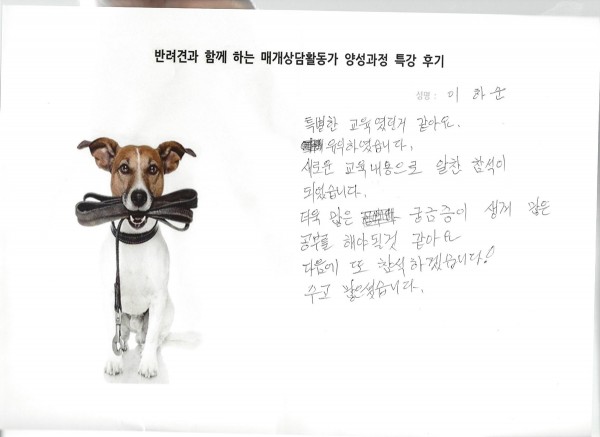 반려견과 함께 하는 매개상담활동가 양성과정 특강 후기
성명 : 이하운
특별한 교육였던거 같아요.
유익하였습니다.
새로운 교육내용으로 알찬 참석이
되었습니다.
더욱 많은 궁금증이 생겨 많은
공부를 해야될것 같아요
다음에 또 참석하겠습니다!
수고 많으셨습니다.